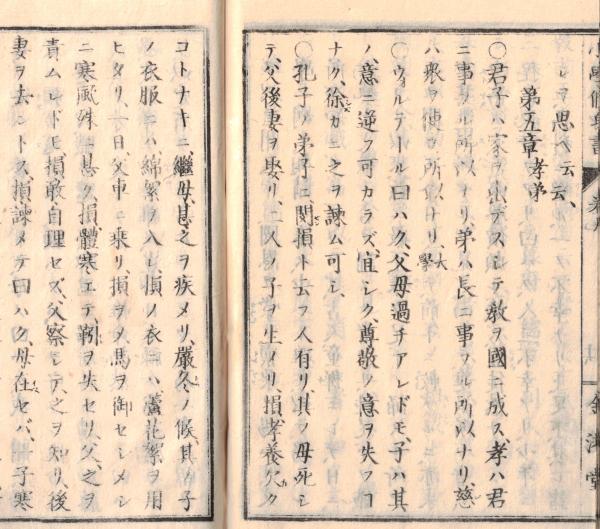 レヲ思ヘ云云、
第五章 孝弟
〇君子ハ家ヲ出デズシテ教ヲ國ニ成ス、孝ハ君
ニ事フル所以ナリ、弟ハ長ニ事フル所以ナリ、慈
ハ衆ヲ使フ所以ナリ、大學
〇ウォルテール曰ハク、父母過チアレドモ、子ハ其
ノ意ニ逆フ可カラズ、宜シク尊敬ノ意ヲ失フコ
ナク、徐カニ之ヲ諫ム可シ、
〇孔子ノ弟子ニ閔損ト云フ人有リ其ノ母死シ
テ、父後妻ヲ娶リ、二人ノ子ヲ生メリ、損孝養欠ク
コトナキニ、繼母甚ダ之ヲ疾メリ、嚴冬ノ候、其ノ子
ノ衣服ニハ綿絮ヲ入レ、損ノ衣ニハ蘆花絮ヲ用
ヒタリ、一日、父車ニ乗リ、損ヲメ馬ヲ御セシメシ
ニ、寒風殊ニ甚ク、損體寒エテ靷ヲ失セリ、父之ヲ
責ムレドモ、損敢自理セズ、父察シテ之ヲ知リ、後
妻ヲ去ントス、損諫メテ曰ハク、母在セバ、一子寒